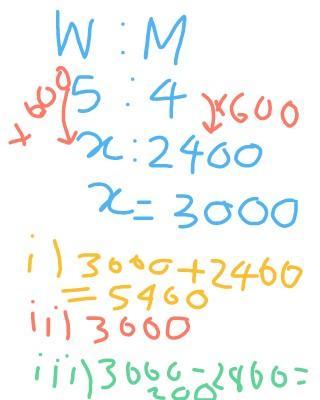 W : M
×600 5 : 4 ×600
x : 2400
x = 3000
i) 3000 + 2400
= 5400
ii) 3000
iii) 3000 - 2400 =
200